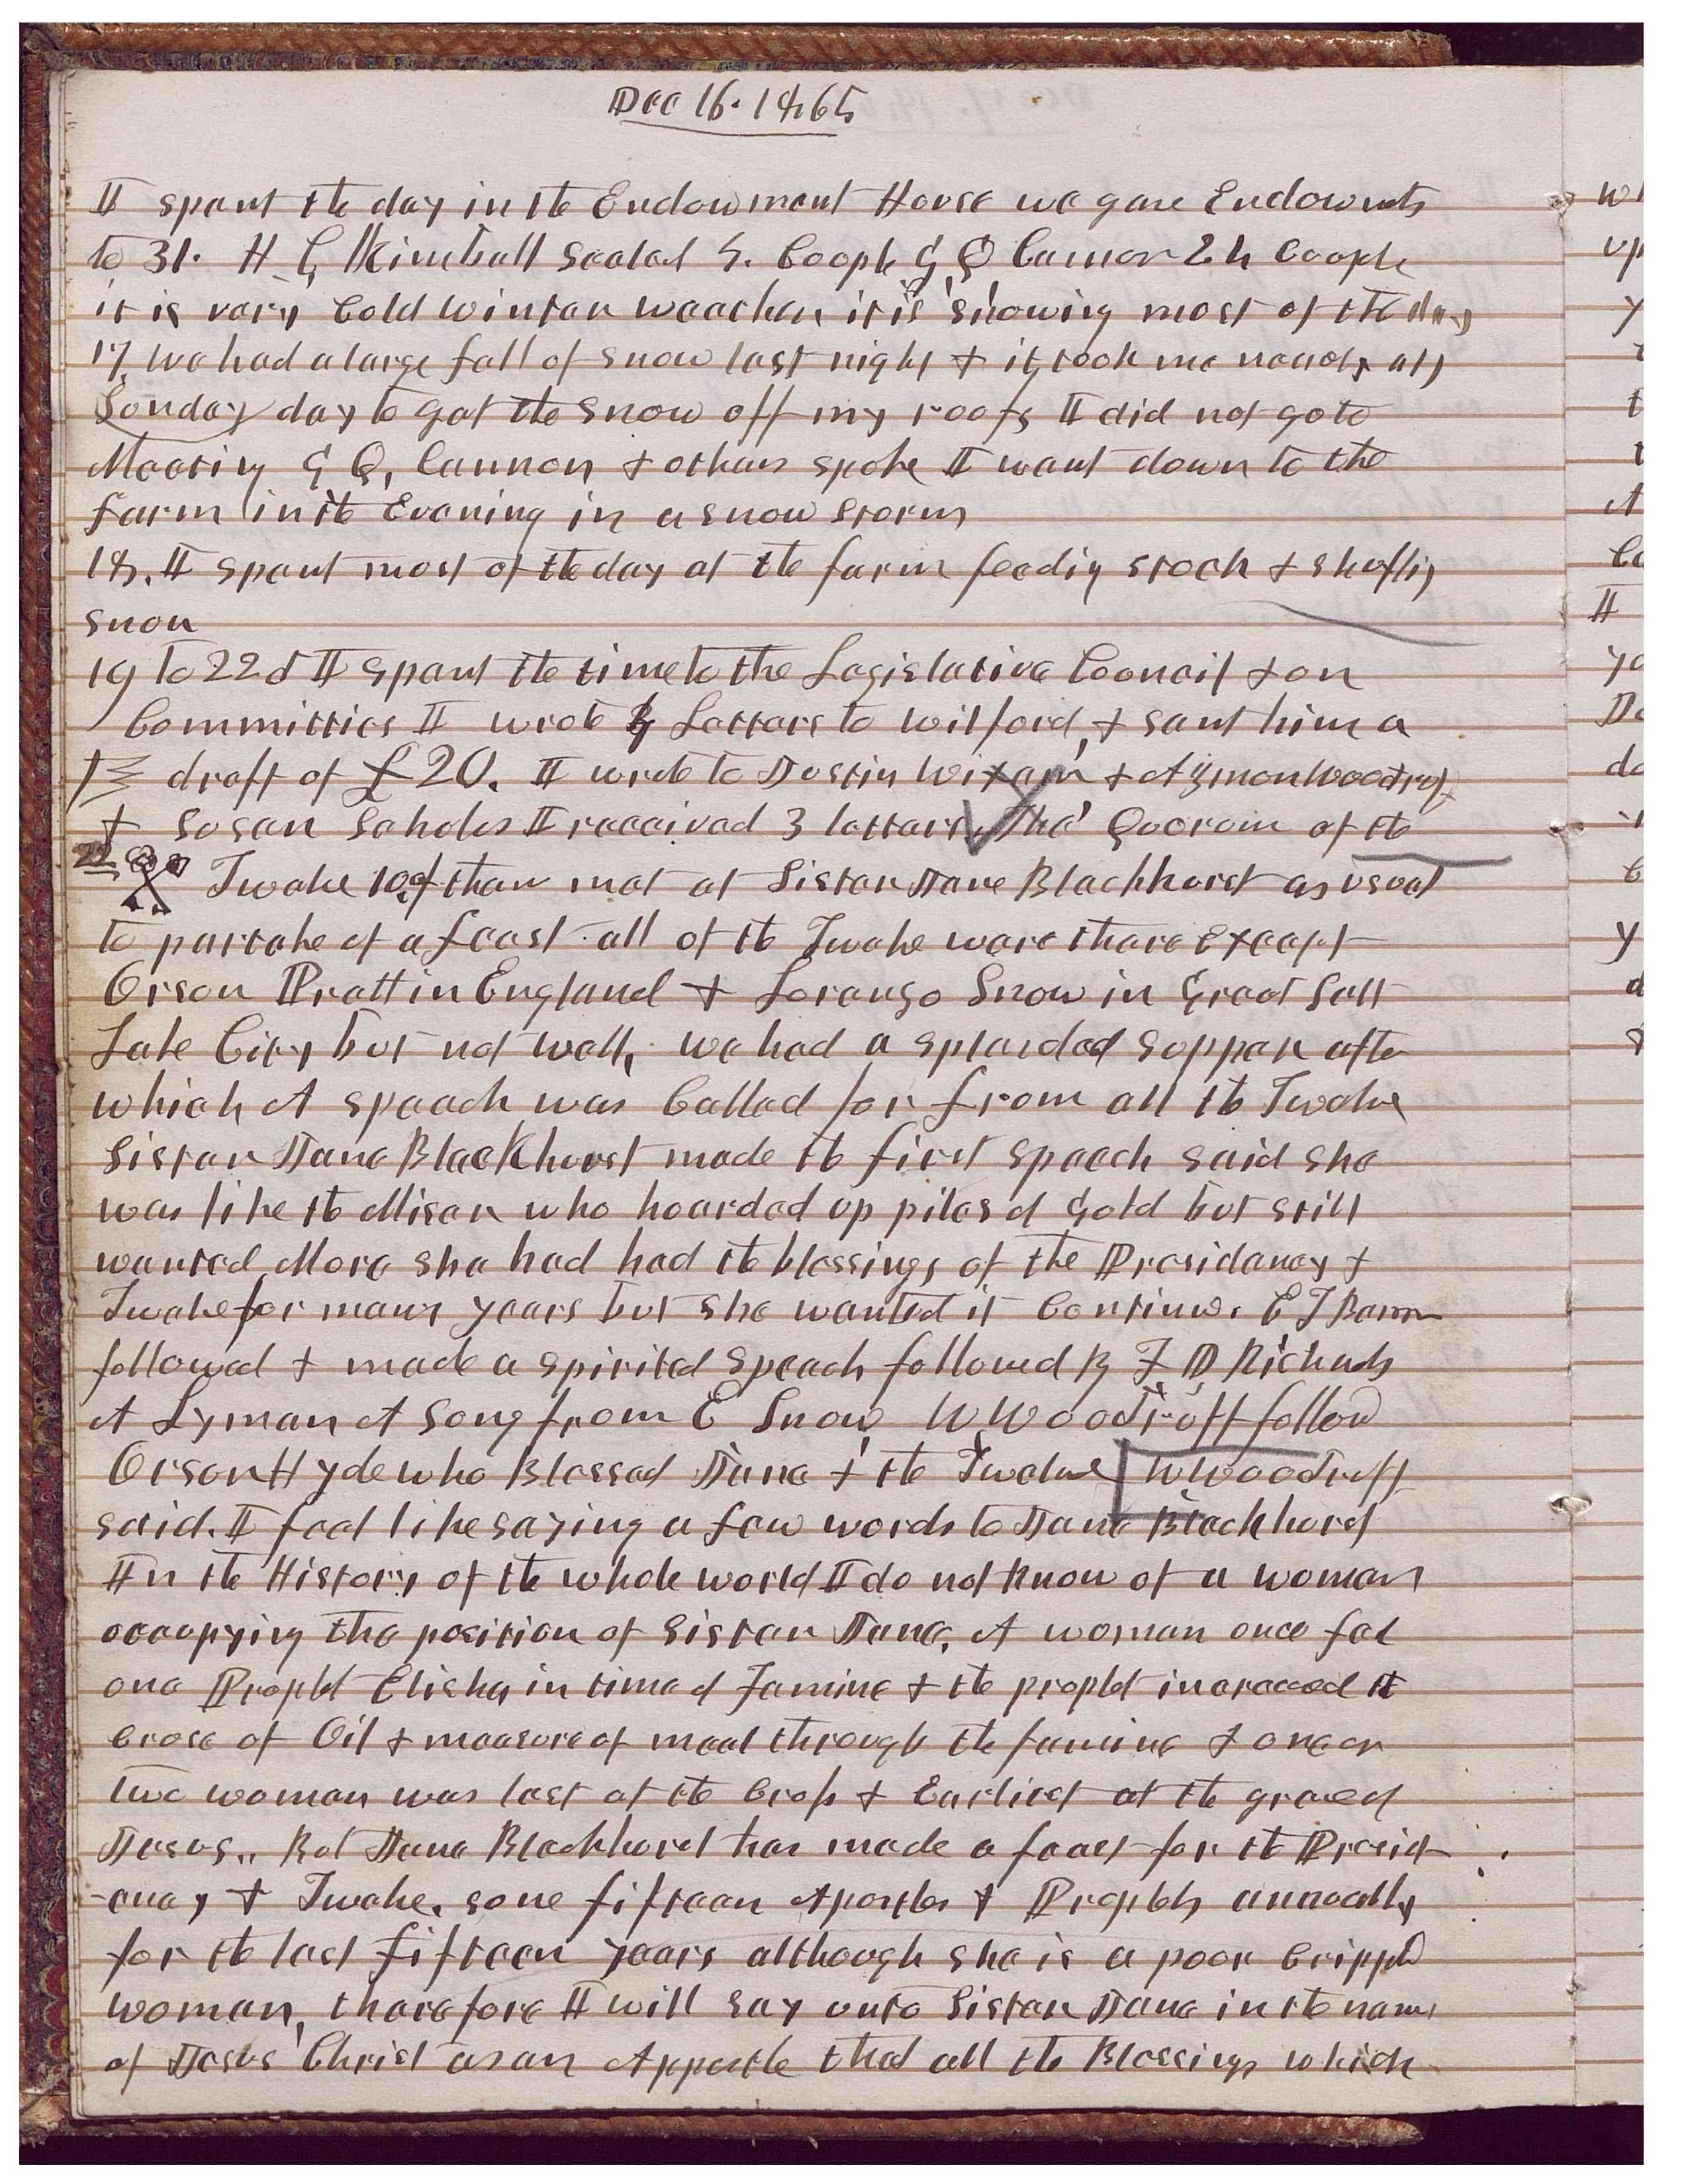 Dec 16. 1865
I spent the day in the Endowment House we gave Endowmts
to 31. H C Kimball Sealed 5. Coople G Q Cannon 24 Coople
it is vary Cold winter weather it is snowing most of the day
17, we had a large fall of snow last night & it took me neadly all
Sunday day to get the snow off my roofs I did not go to
Meeting G Q, Cannon & others spoke I went down to the
farm in the Evening in a snow storm
18. I spent most of the day at the farm feeding stock & shuffling
snow
19 to 22d I spent the time to the Legislative Council & on
Committies I wrote 3 Letters to Wilford, & sent him a
draft of £20. I wrote to Justin Wixam & Azmon Woodruff
& Susan Scholes I received 3 letters, The Quorum of the
22 Twelve 10 of them met at Sister Jane Blackhurst as usual
to partake of a feast all of the Twelve ware there except
Orson Pratt in England & Lorenzo Snow in Great Salt
Lake City but not well, we had a splended supper after
which A speech was Called for from all the Twelve
Sister Jane Blackhurst made the first speech said she
was like the Miser who hoarded up piles of Gold but still
wanted More she had had the blessings of the Presidency &
Twelve for many years but she wanted it Continu. E T Benson
followed & made a spirited speech followed By F D Richards
A Lyman A Song from E Snow W Woodruff follow
Orson Hyde who Blessed Jane & the Twelve W Woodruff
said. I feel like saying a few words to Jane Blackhurst
In the History of the whole world I do not know of a woman
occupying the position of Sister Jane. A woman once fed
one Prophet Elisha in time of Famine & the prophet increased the
Cruse of Oil & measure of meal through the famine & one or
two woman was last at the Cross & Earliest at the grave of
Jesus,, But Jane Blackhurst has made a feast for the Presid-
-ency & Twelve, some fifteen Apostles & Prophets annually
for the last fifteen years although she is a poor Cripple
woman, therefore I will say unto Sister Jane in the name
of Jesus Christ as an Appostle that all the Blessings which